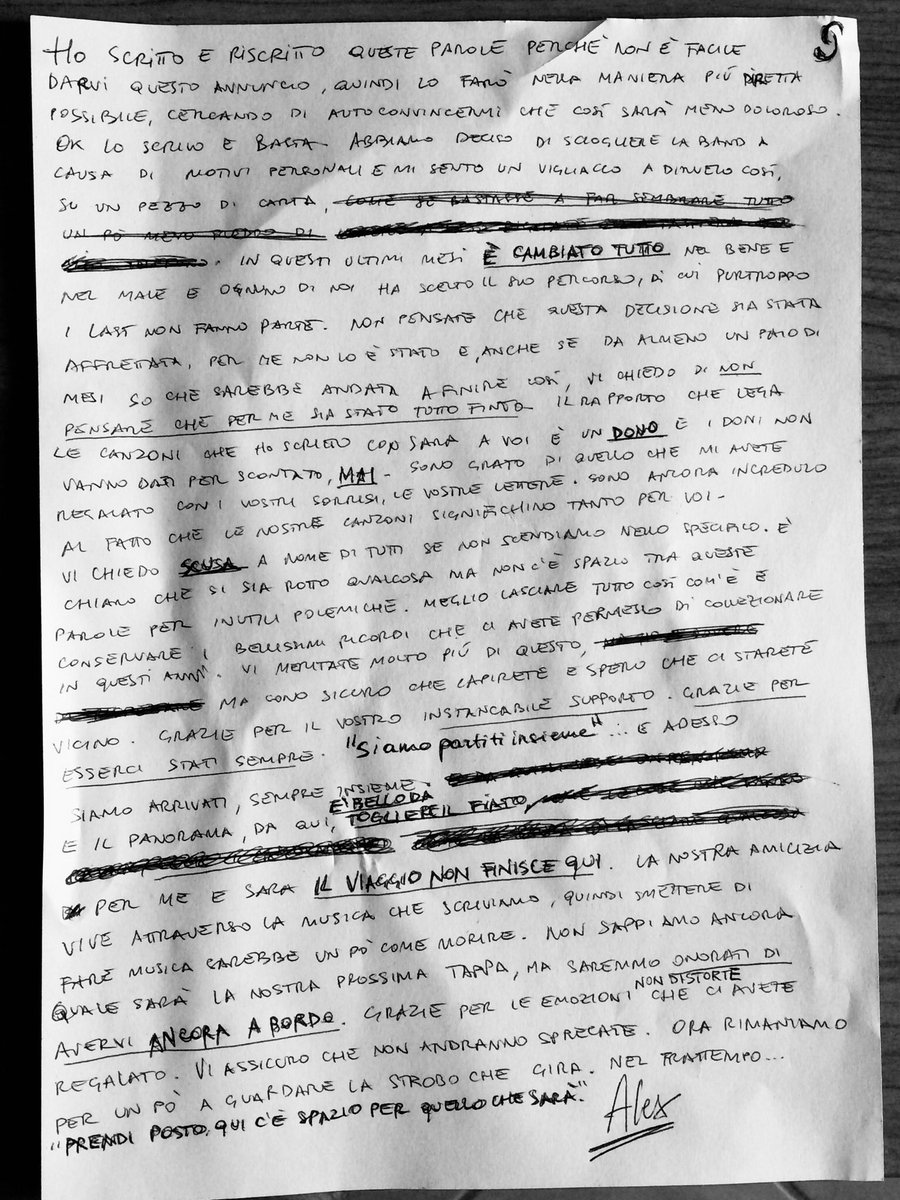 HO SCRITTO E RISCRITTO QUESTE PAROLE PERCHÈ NON È FACILE
DARVI QUESTO ANNUNCIO, QUINDI LO FARÒ NELLA MANIERA PIÚ DIRETTA
POSSIBILE, CERCANDO DI AUTOCONVINCERMI CHE COSÍ SARÀ MENO DOLOROSO.
OK LO SCRIVO E BASTA - ABBIAMO DECISO DI SCIOGLIERE LA BAND A
CAUSA DI MOTIVI PERSONALI E MI SENTO UN VIGLIACCO A DIRVELO COSÍ,
SU UN PEZZO DI CARTA, COME SE BASTASSE A FAR SEMBRARE TUTTO
UN PÒ MENO FREDDO DI
. IN QUESTI ULTIMI MESI È CAMBIATO TUTTO NEL BENE E
NEL MALE E OGNUNO DI NOI HA SCELTO IL SUO PERCORSO, DI CUI PURTROPPO
I LAST NON FANNO PARTE. NON PENSATE CHE QUESTA DECISIONE SIA STATA
AFFRETTATA, PER ME NON LO È STATO E, ANCHE SE DA ALMENO UN PAIO DI
MESI SO CHE SAREBBE ANDATA A FINIRE COSÍ, VI CHIEDO DI NON
PENSARE CHE PER ME SIA STATO TUTTO FINTO. IL RAPPORTO CHE LEGA
LE CANZONI CHE HO SCRITTO CON SARA A VOI È UN DONO E I DONI NON
VANNO DATI PER SCONTATO, MAI - SONO GRATO DI QUELLO CHE MI AVETE
REGALATO CON I VOSTRI SORRISI, LE VOSTRE LETTERE. SONO ANCORA INCREDULO
AL FATTO CHE LE NOSTRE CANZONI SIGNIFICHINO TANTO PER VOI -
VI CHIEDO SCUSA A NOME DI TUTTI SE NON SCENDIAMO NELLO SPECIFICO. È
CHIARO CHE SI SIA ROTTO QUALCOSA MA NON C'È SPAZIO TRA QUESTE
PAROLE PER INUTILI POLEMICHE. MEGLIO LASCIARE TUTTO COSÍ COM'È E
CONSERVARE I BELLISSIMI RICORDI CHE CI AVETE PERMESSO DI COLLEZIONARE
IN QUESTI ANNI. VI MERITATE MOLTO PIÚ DI QUESTO,
MA SONO SICURO CHE CAPIRETE E SPERO CHE CI STARETE
VICINO. GRAZIE PER IL VOSTRO INSTANCABILE SUPPORTO. GRAZIE PER
ESSERCI STATI SEMPRE. "Siamo partiti insieme"... E ADESSO
SIAMO ARRIVATI, SEMPRE INSIEME.
E IL PANORAMA, DA QUI, È BELLO DA TOGLIERE IL FIATO,
PER ME E SARA IL VIAGGIO NON FINISCE QUI. LA NOSTRA AMICIZIA
VIVE ATTRAVERSO LA MUSICA CHE SCRIVIAMO, QUINDI SMETTERE DI
FARE MUSICA SAREBBE UN PÒ COME MORIRE. NON SAPPIAMO ANCORA
QUALE SARÀ LA NOSTRA PROSSIMA TAPPA, MA SAREMMO ONORATI DI
AVERVI ANCORA A BORDO. GRAZIE PER LE EMOZIONI NON DISTORTE CHE CI AVETE
REGALATO. VI ASSICURO CHE NON ANDRANNO SPRECATE. ORA RIMANIAMO
PER UN PÒ A GUARDARE LA STROBO CHE GIRA. NEL FRATTEMPO...
"PRENDI POSTO, QUI C'È SPAZIO PER QUELLO CHE SARÀ."
Alex